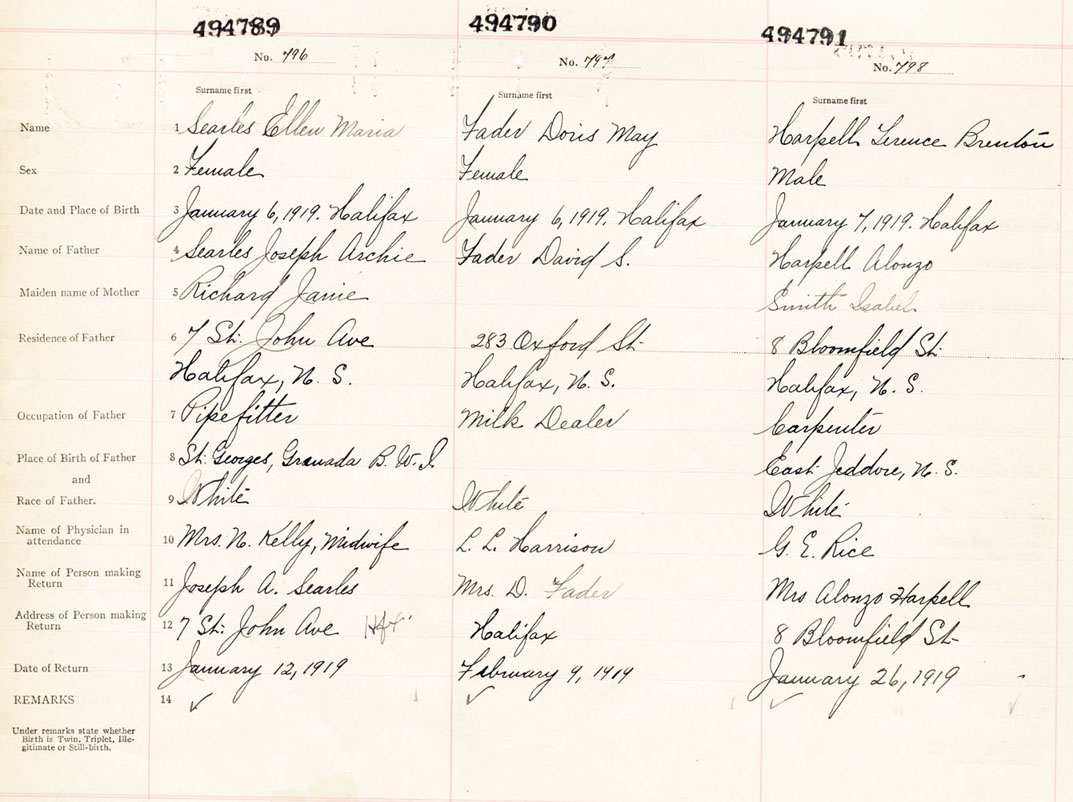 494789 494790 494791
No. 796 No. 797 No. 798
Surname first Surname first Surname first
Name 1 Searles Ellen Maria Fader Doris May Harpell Terence Brenton
Sex 2 Female Female Male
Date and Place of Birth 3 January 6, 1919. Halifax January 6, 1919. Halifax January 7, 1919. Halifax
Name of Father 4 Searles Joseph Archie Fader David S. Harpell Alonzo
Maiden name of Mother 5 Richard Janie Smith Isabel
Residence of Father 6 7 St. John Ave 283 Oxford St. 8 Bloomfield St.
Halifax, N. S. Halifax, N. S. Halifax, N. S.
Occupation of Father 7 Pipefitter Milk Dealer Carpenter
Place of Birth of Father 8 St. Georges, Granada B. W. I. East Jeddore, N. S.
and
Race of Father. 9 White White White
Name of Physician in
attendance 10 Mrs. N. Kelly, Midwife L. L. Harrison G. E. Rice
Name of Person making
Return 11 Joseph A. Searles Mrs. D. Fader Mrs Alonzo Harpell
Address of Person making
Return 12 7 St. John Ave Hfx Halifax 8 Bloomfield St.
Date of Return 13 January 12, 1919 February 9, 1919 January 26, 1919
REMARKS 14
Under remarks state whether
Birth is Twin, Triplet, Ille-
gitimate or Still-birth.